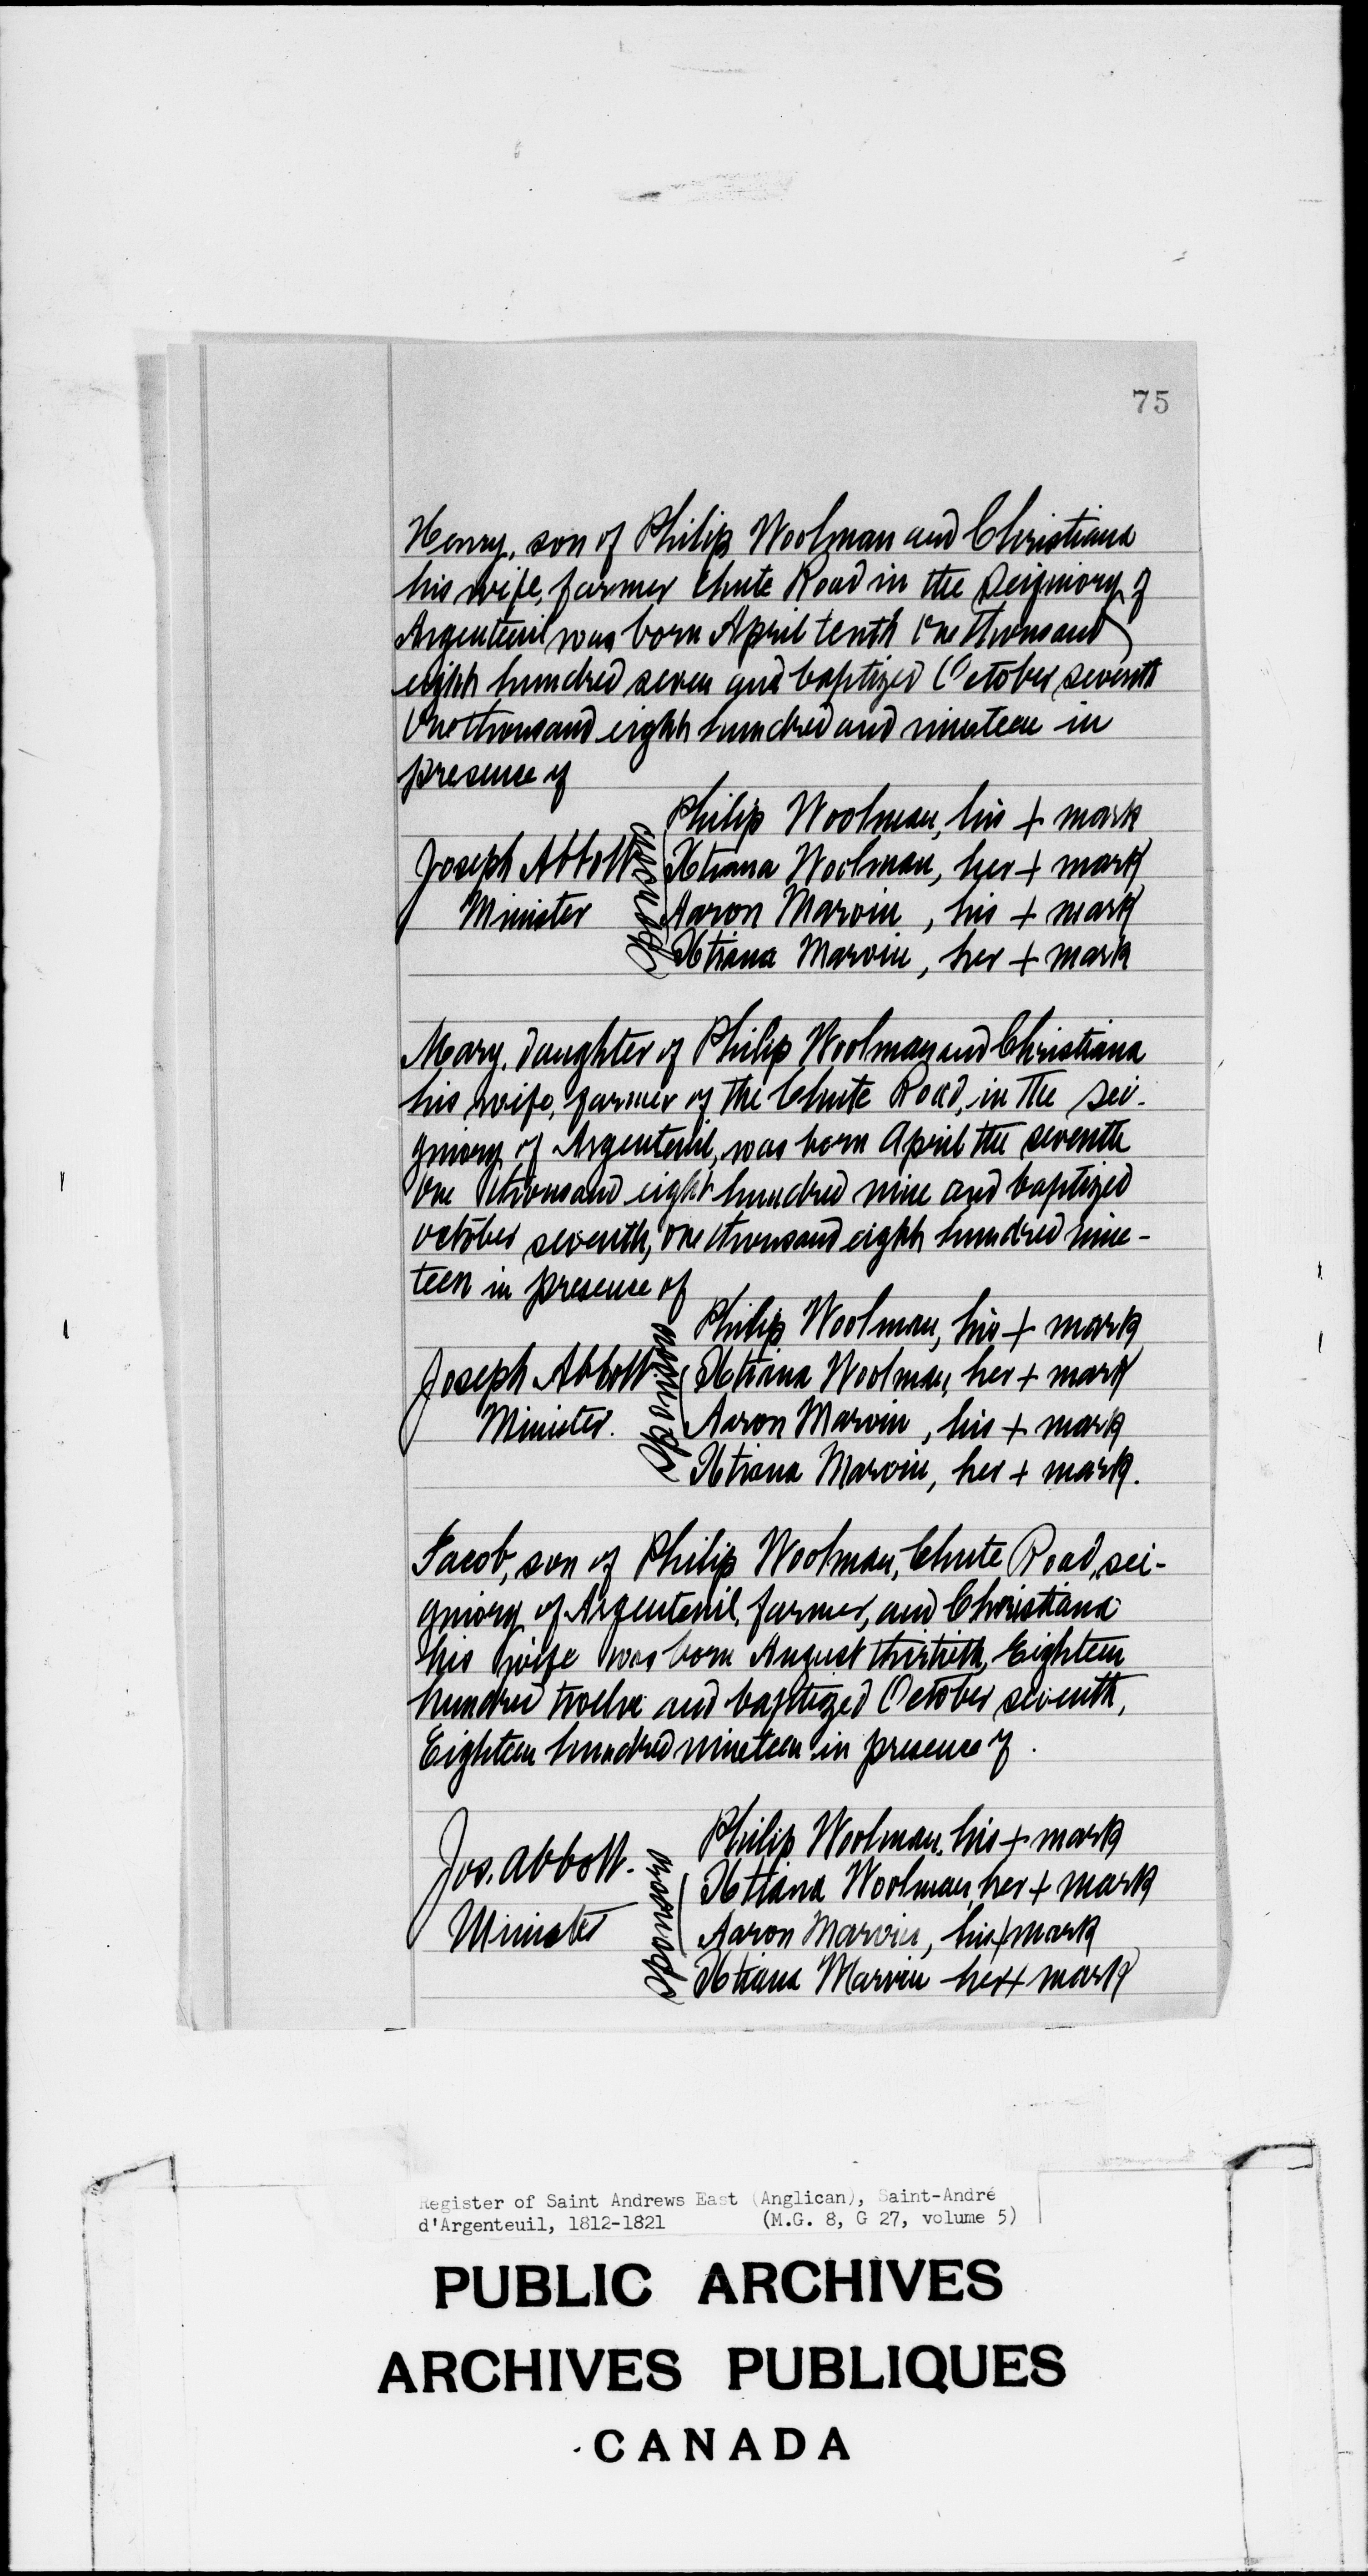 75
Henry, son of Philip Woolman and Christiana
his wife, farmer Chute Road in the Seigniory of
Argenteuil was born April tenth One thousand
eight hundred seven and baptized October seventh
One thousand eight hundred and nineteen in
presence of
Philip Woolman, his + mark
Joseph Abbott Xtiana Woolman, her + mark
Minister Aaron Marvin, his + mark
Sponsors
Xtiana Marvin, her + mark
Mary, daughter of Philip Woolman and Christiana
his wife, farmer of the Chute Road, in the sei-
gniory of Argenteuil, was born April the seventh
One thousand eight hundred nine and baptized
October seventh, One thousand eight hundred nine-
teen in presence of
Philip Woolman, his + mark
Joseph Abbott Xtiana Woolman, her + mark
Minister. Aaron Marvin, his + mark
Sponsors
Xtiana Marvin, her + mark.
Jacob, son of Philip Woolman, Chute Road, sei-
gniory of Argenteuil, farmer, and Christiana
his wife was born August thirtieth, Eighteen
hundred twelve and baptized October seventh,
Eighteen hundred nineteen in presence of.
Philip Woolman, his + mark
Jos. Abbott. Xtiana Woolman, her + mark
Minister Aaron Marvin, his + mark
Sponsors
Xtiana Marvin her + mark
Register of Saint Andrews East (Anglican), Saint-André
d'Argenteuil, 1812-1821 (M.G. 8, G 27, volume 5)
PUBLIC ARCHIVES
ARCHIVES PUBLIQUES
CANADA